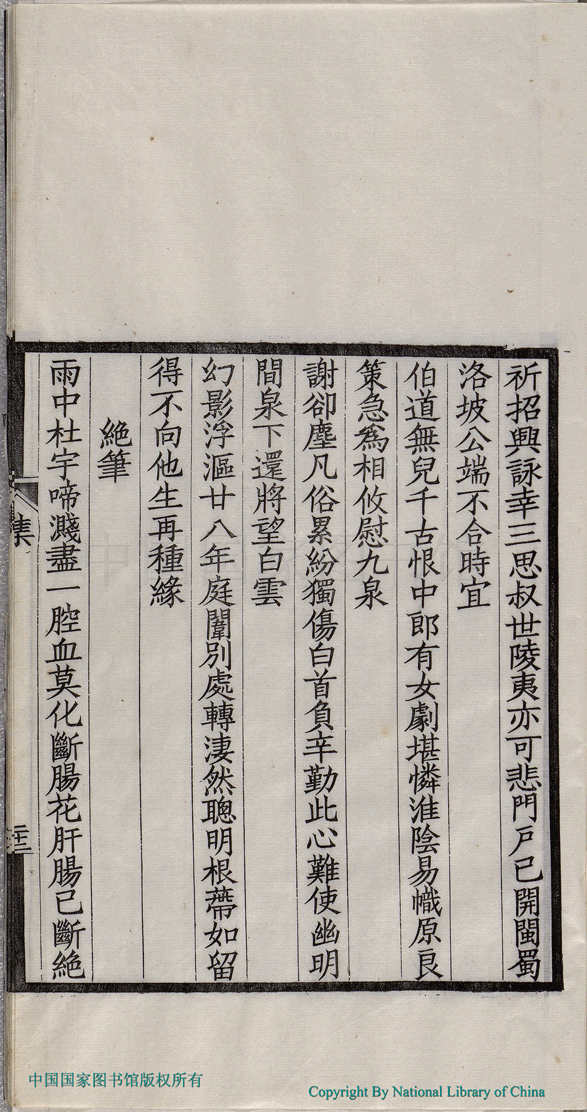 祈招興詠幸三思叔世陵夷亦可悲門戸已開閩蜀
洛坡公端不合時宜
伯道無兒千古恨中郎有女劇堪憐淮陰易幟原良
策急爲相攸慰九泉
謝卻塵凡俗累紛獨傷白首負辛勤此心難使幽明
間泉下還將望白雲
幻影浮漚廿八年庭闈別處轉淒然聰明根蔕如留
得不向他生再種緣
絕筆
雨中杜宇啼濺盡一腔血莫化斷腸花肝腸已斷絕
集
二十三
中国国家图书馆版权所有
Copyright By National Library of China